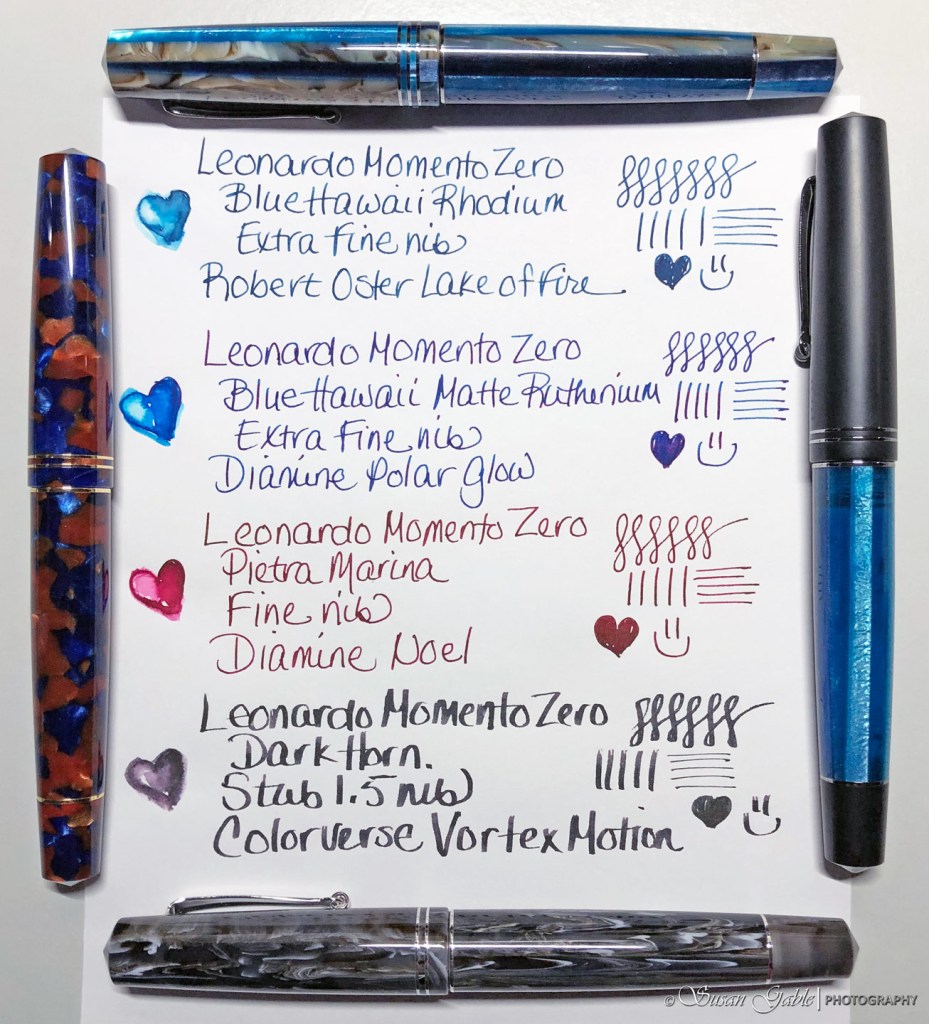 Leonardo Momento Zero
Blue Hawaii Rhodium
Extra Fine nib
Robert Oster Lake of Fire
Leonardo Momento Zero
Blue Hawaii Matte Ruthenium
Extra Fine nib
Diamine Polar Glow
Leonardo Momento Zero
Pietra Marina
Fine nib
Diamine Noel
Leonardo Momento Zero
Dark Horn.
Stub 1.5 nib
Colorverse Vortex Motion
© Susan Gable | PHOTOGRAPHY